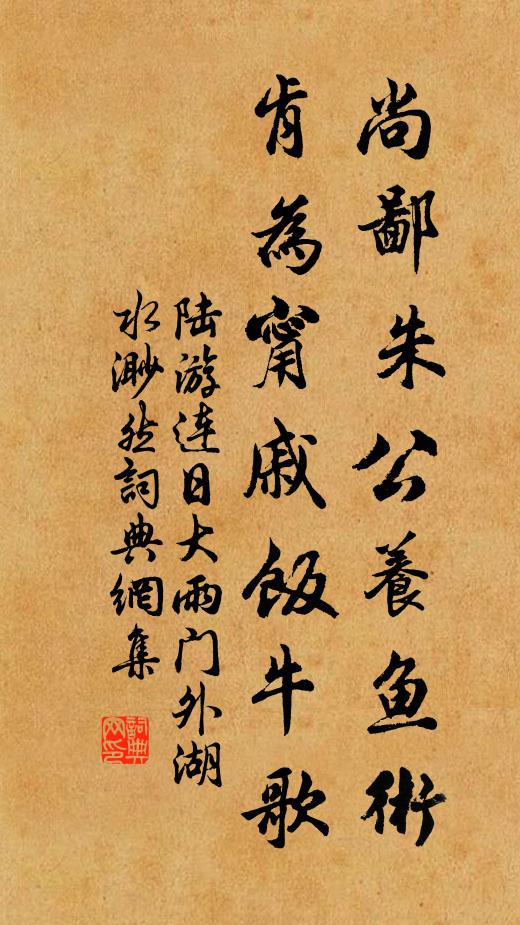 尚鄙朱公養鱼術
肯為甯戚飯牛歌
陆游连日大雨门外湖
水渺然詞典網集
詞典
网印